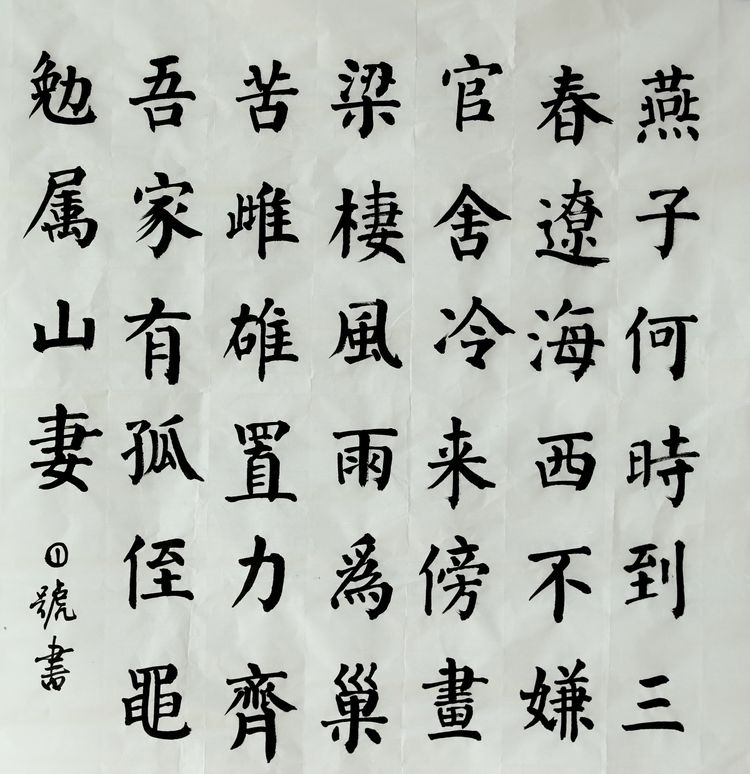 燕子何時到三
春遼海西不嫌
官舍冷来傍畫
梁棲風雨爲巢
苦雌雄置力齊
吾家有孤侄黽
勉属山妻
①號書